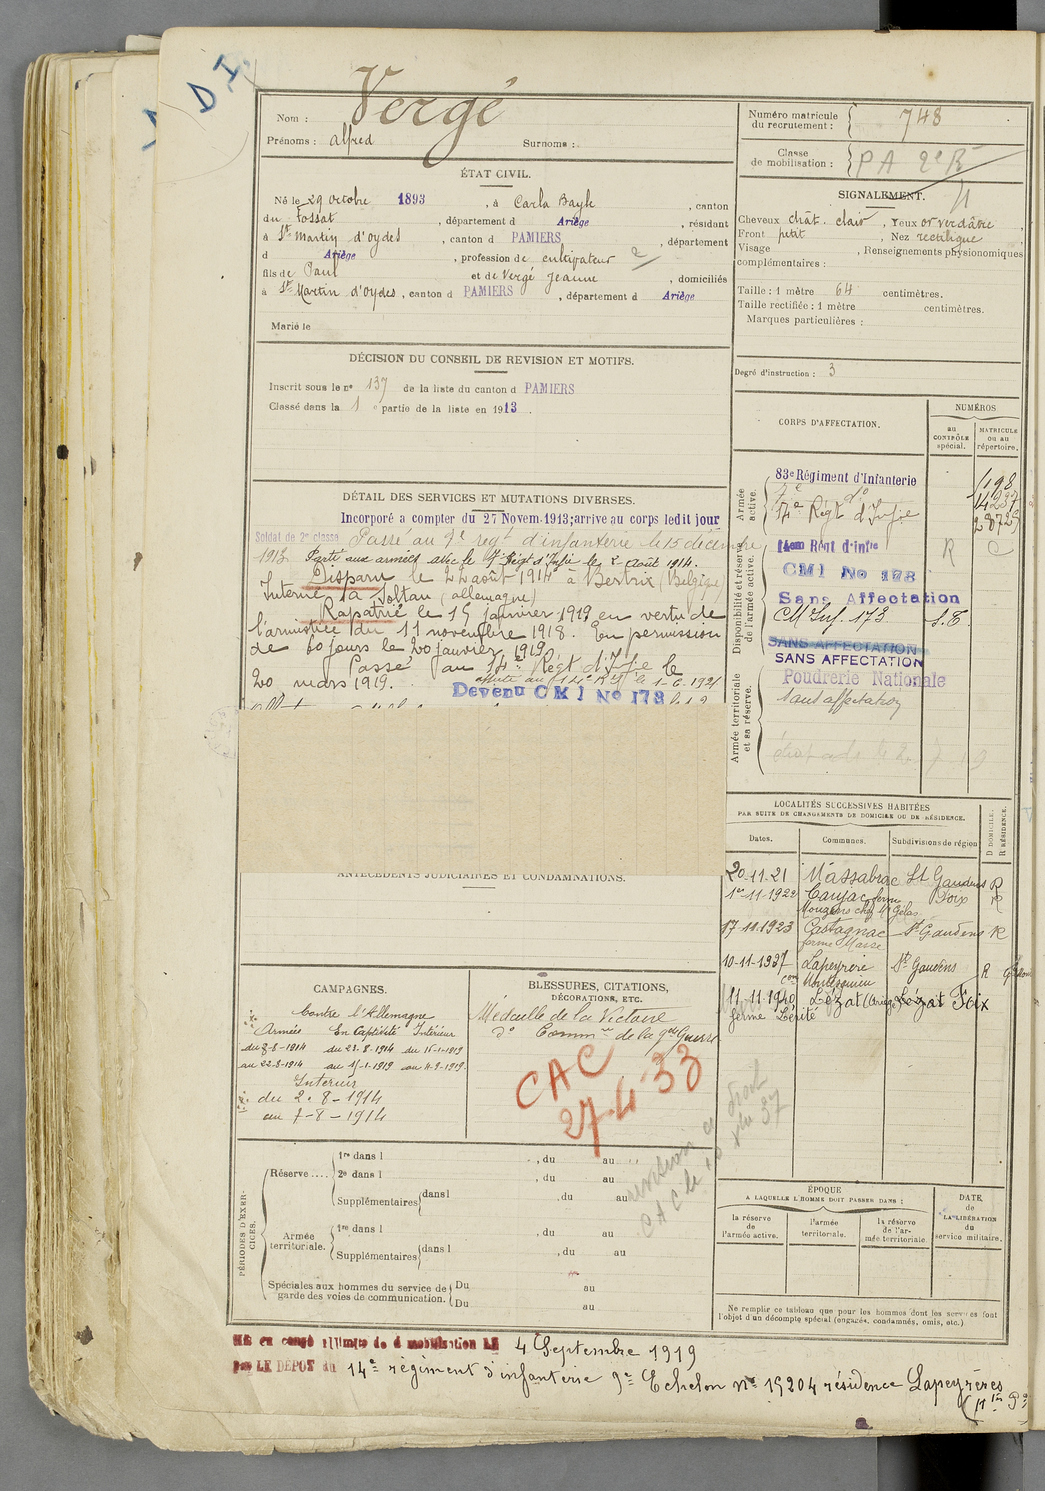 D I
Nom : Vergé
Prénoms : Alfred Surnoms :
Numéro matricule du recrutement : 748
Classe de mobilisation : PA 2e R
ÉTAT CIVIL.
Né le 29 octobre 1893, à Carla Bayle, canton
du Fossat, département d Ariège, résidant
à St Martin d'oydes, canton d PAMIERS, département
d Ariège, profession de cultivateur
fils de Paul et de Vergé Jeanne, domiciliés
à St Martin d'oydes, canton d PAMIERS, département d Ariège
Marié le
SIGNALEMENT.
Cheveux chât. clair, Yeux or verdâtre,
Front petit, Nez rectiligne
Visage , Renseignements physionomiques
complémentaires :
Taille : 1 mètre 64 centimètres.
Taille rectifiée : 1 mètre centimètres.
Marques particulières :
Degré d'instruction : 3
DÉCISION DU CONSEIL DE REVISION ET MOTIFS.
Inscrit sous le no 137 de la liste du canton d PAMIERS
Classé dans la 1 e partie de la liste en 1913.
DÉTAIL DES SERVICES ET MUTATIONS DIVERSES.
Incorporé a compter du 27 Novem. 1913; arrive au corps ledit jour
Soldat de 2e classe Passé au 9e regt d'infanterie le 15 décembre
1913. Parti aux armées avec le 7e Régt d'Infie le 8 Août 1914.
Disparu le 22 août 1914 à Bertrix (Belgique)
Interné à Soltau (allemagne)
Rapatrié le 15 janvier 1919 en vertu de
l'armistice du 11 novembre 1918. En permission
de 60 jours le 20 janvier 1919
Passé au 14e Régt d'Infie le
20 mars 1919. affecté au 14e R.I. le 1-6-1921
Devenu CMI No 178
CORPS D'AFFECTATION.
NUMÉROS
au CONTRÔLE spécial.
MATRICULE ou au répertoire.
Armée active.
83e Régiment d'Infanterie
7e do
14e Régt d'Infie
Disponibilité et réserve de l'armée active.
14em Régt d'infie R C
CMI No 178
Sans Affectation
CM Inf. 173 S.E.
SANS AFFECTATION
SANS AFFECTATION
Armée territoriale et sa réserve.
Poudrerie Nationale
sans affectation
LOCALITÉS SUCCESSIVES HABITÉES
PAR SUITE DE CHANGEMENTS DE DOMICILE OU DE RÉSIDENCE.
Dates. Communes. Subdivisions de région D DOMICILE. R RÉSIDENCE.
20-11-21 Massabrac St Gaudens R
1er-11-1922 Canjac ferme Foix R
Mouzens chez Mr Gélas
17-11-1923 Castagnac St Gaudens R
ferme Masse
10-11-1937 Lapeyrère St Gaudens R
Montesquieu
11-11-1940 Lézat (Ariège) Lézat Foix
ferme Lérité
ANTÉCÉDENTS JUDICIAIRES ET CONDAMNATIONS.
CAMPAGNES.
Contre l'Allemagne
Armées En Captivité Intérieur
du 8-8-1914 du 23.8.1914 du 16-1-1919
au 22-8-1914 au 15-1-1919 au 4-9-1919.
Intérieur
du 2-8-1914
au 7-8-1914
BLESSURES, CITATIONS,
DÉCORATIONS, ETC.
Médaille de la Victoire
do Commve de la gde Guerre
CAC
27-4-33
CAC le
PÉRIODES D'EXERCICES.
Réserve....
1re dans l , du au
2e dans l , du au
Supplémentaires dans l , du au
Armée territoriale.
1re dans l , du au
Supplémentaires dans l , du au
Spéciales aux hommes du service de garde des voies de communication.
Du au
Du au
ÉPOQUE
A LAQUELLE L'HOMME DOIT PASSER DANS :
la réserve de l'armée active.
l'armée territoriale.
la réserve de l'armée territoriale.
DATE de LA LIBÉRATION du service militaire.
Ne remplir ce tableau que pour les hommes dont les services font
l'objet d'un décompte spécial (engagés, condamnés, omis, etc.)
MIS en congé illimité de démobilisation LE 4 Septembre 1919
par LE DÉPOT du 14e régiment d'infanterie 9e Echelon No 15204 résidence Lapeyrères